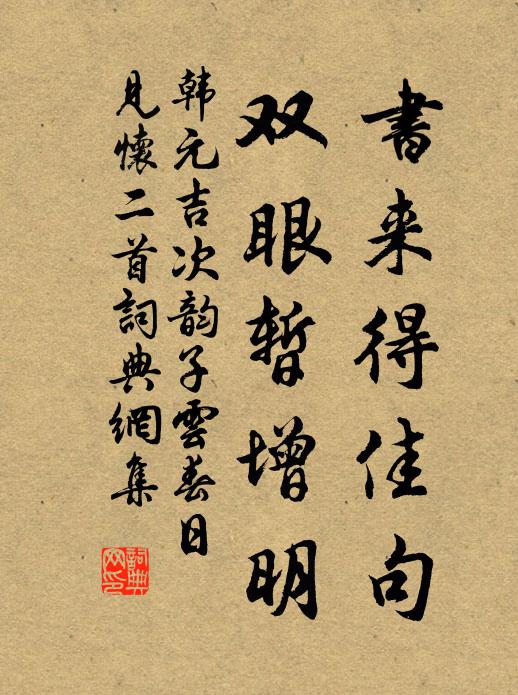 書来得佳句
双眼暫增明
韩元吉次韵子雲春日
見懷二首詞典網集
詞典
网印